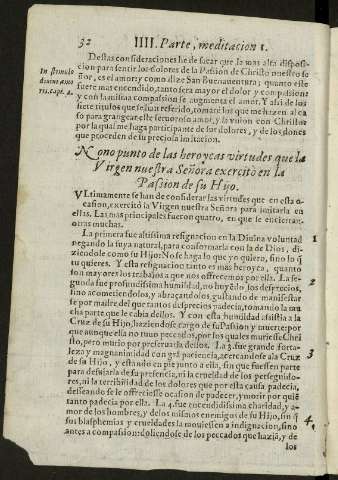 32 IIII. Parte, meditacion 1.
Destas consideraciones he de sacar que la mas alta disposi-
cion para sentir los dolores de la Passion de Christo nuestro se
ñor, es el amor: y como dize San Buenauentura, quanto este
fuere mas encendido, tanto sera mayor el dolor y compassion:
y con la misma compassion se augmenta el amor. Y assi de los
siete titulos que se han referido, tomarè los que me hazen al ca
so para grangear este feruoroso amor, y la vnion con Christo:
por la qual me haga participante de sus dolores, y de los dones
que proceden de su preciosa imitacion.
In stimulo
diuini amo
ris, capt. 2.
Nono punto de las heroycas virtudes que la
Virgen nuestra Señora exercitò en la
Passion de su Hijo.
VLtimamente se han de considerar las virtudes que en esta o-
casion, exercitò la Virgen nuestra Señora para imitarla en
ellas. Las mas principales fueron quatro, en que se encierran
otras muchas.
La primera fue altissima resignacion en la Diuina voluntad 1
negando la suya natural, para conformarla con la de Dios, di-
ziendole como su Hijo: No se haga lo que yo quiero, sino lo q̃
tu quieres. Y esta resignacion tanto es mas heroyca, quanto
son mayores los trabajos a que nos ofrecemos por ella. La se-
gunda fue profundissima humildad, no huyẽdo los desprecios, 2
sino acometiendolos, y abraçandolos, gustando de manifestar
se por madre del que tantos desprecios padecia, tomando la mu
cha parte que le cabia dellos. Y con esta humildad assistia a la
Cruz de su Hijo, haziendose cargo de su Passion y muerte: por
que aunque ella no tuuo pecados, por los quales muriesse Chri
sto, pero murio por preseruarla dellos. La 3. fue grande forta-
leza y magnanimidad con grã paciencia, acercandose a la Cruz 3
de su Hijo, y estando en pie junto a ella, sin que fuessen parte
para desuiarla de su presencia, ni la crueldad de los perseguido-
res, ni la terribilidad de los dolores que por esta causa padecia,
desseando se le ofreciesse ocasion de padecer, y morir por quiẽ
tanto padecia por ella. La 4. fue encendidissima charidad, y a-
mor de los hombres, y de los mismos enemigos de su Hijo, sin q̃ 4
sus blasphemias y crueldades la mouiessen a indignacion, sino
antes a compassion: doliendose de los pecados que haziã, y de
los